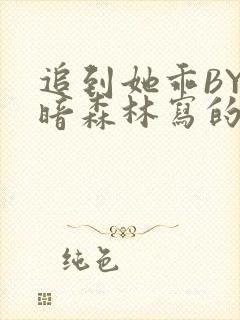 追到她乖BY
暗森林寫的
纯色